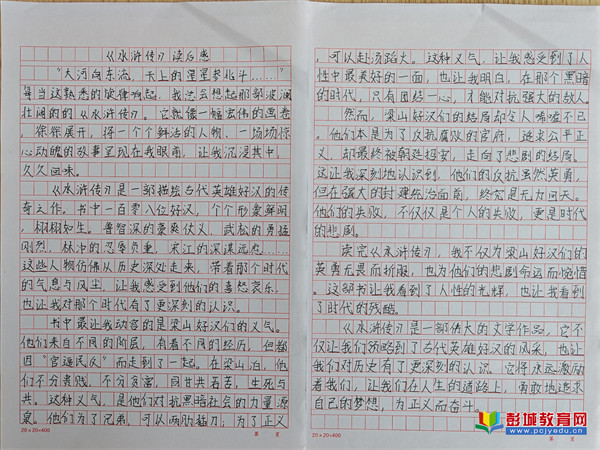 《水浒传》读后感
“大河向东流，天上的星星参北斗……”
每当这熟悉的旋律响起，我总会想起那部波澜
壮阔的的《水浒传》。它就像一幅宏伟的画卷
，徐徐展开，将一个个鲜活的人物、一场场惊
心动魄的故事呈现在我眼前，让我沉浸其中，
久久回味。
《水浒传》是一部描绘古代英雄好汉的传
奇之作。书中一百零八位好汉，个个形象鲜明
，栩栩如生。鲁智深的豪爽仗义，武松的勇猛
刚烈，林冲的忍辱负重，宋江的深谋远虑……
这些人物仿佛从历史深处走来，带着那个时代
的气息与风尘，让我感受到他们的喜怒哀乐，
也让我对那个时代有了更深刻的认识。
书中最让我动容的是梁山好汉们的义气。
他们来自不同的阶层，有着不同的经历，但都
因“官逼民反”而走到了一起。在梁山泊，他
们不分贵贱，不分贫富，同甘共苦，生死与
共。这种义气，是他们对抗黑暗社会的力量源
泉。他们为了兄弟，可以两肋插刀；为了正义
20×20=400
第 页
，可以赴汤蹈火。这种义气，让我感受到了人
性中最美好的一面，也让我明白，在那个黑暗
的时代，只有团结一心，才能对抗强大的敌人。
然而，梁山好汉们的结局却令人唏嘘不已
。他们本是为了反抗腐败的官府，追求公平正
义，却最终被朝廷招安，走向了悲剧的结局。
这让我深刻地认识到，他们的反抗虽然英勇，
但在强大的封建统治面前，终究是无力回天。
他们的失败，不仅仅是个人的失败，更是时代
的悲剧。
读完《水浒传》，我不仅为梁山好汉们的
英勇无畏而折服，也为他们的悲剧命运而惋惜
。这部书让我看到了人性的光辉，也让我看到
了时代的残酷。
《水浒传》是一部伟大的文学作品，它不
仅让我们领略到了古代英雄好汉的风采，也让
我们对历史有了更深刻的认识。它将永远激励
着我们，让我们在人生的道路上，勇敢地追求
自己的梦想，为正义而奋斗。
20×20=400
彭城教育网
www.pcjyedu.cn